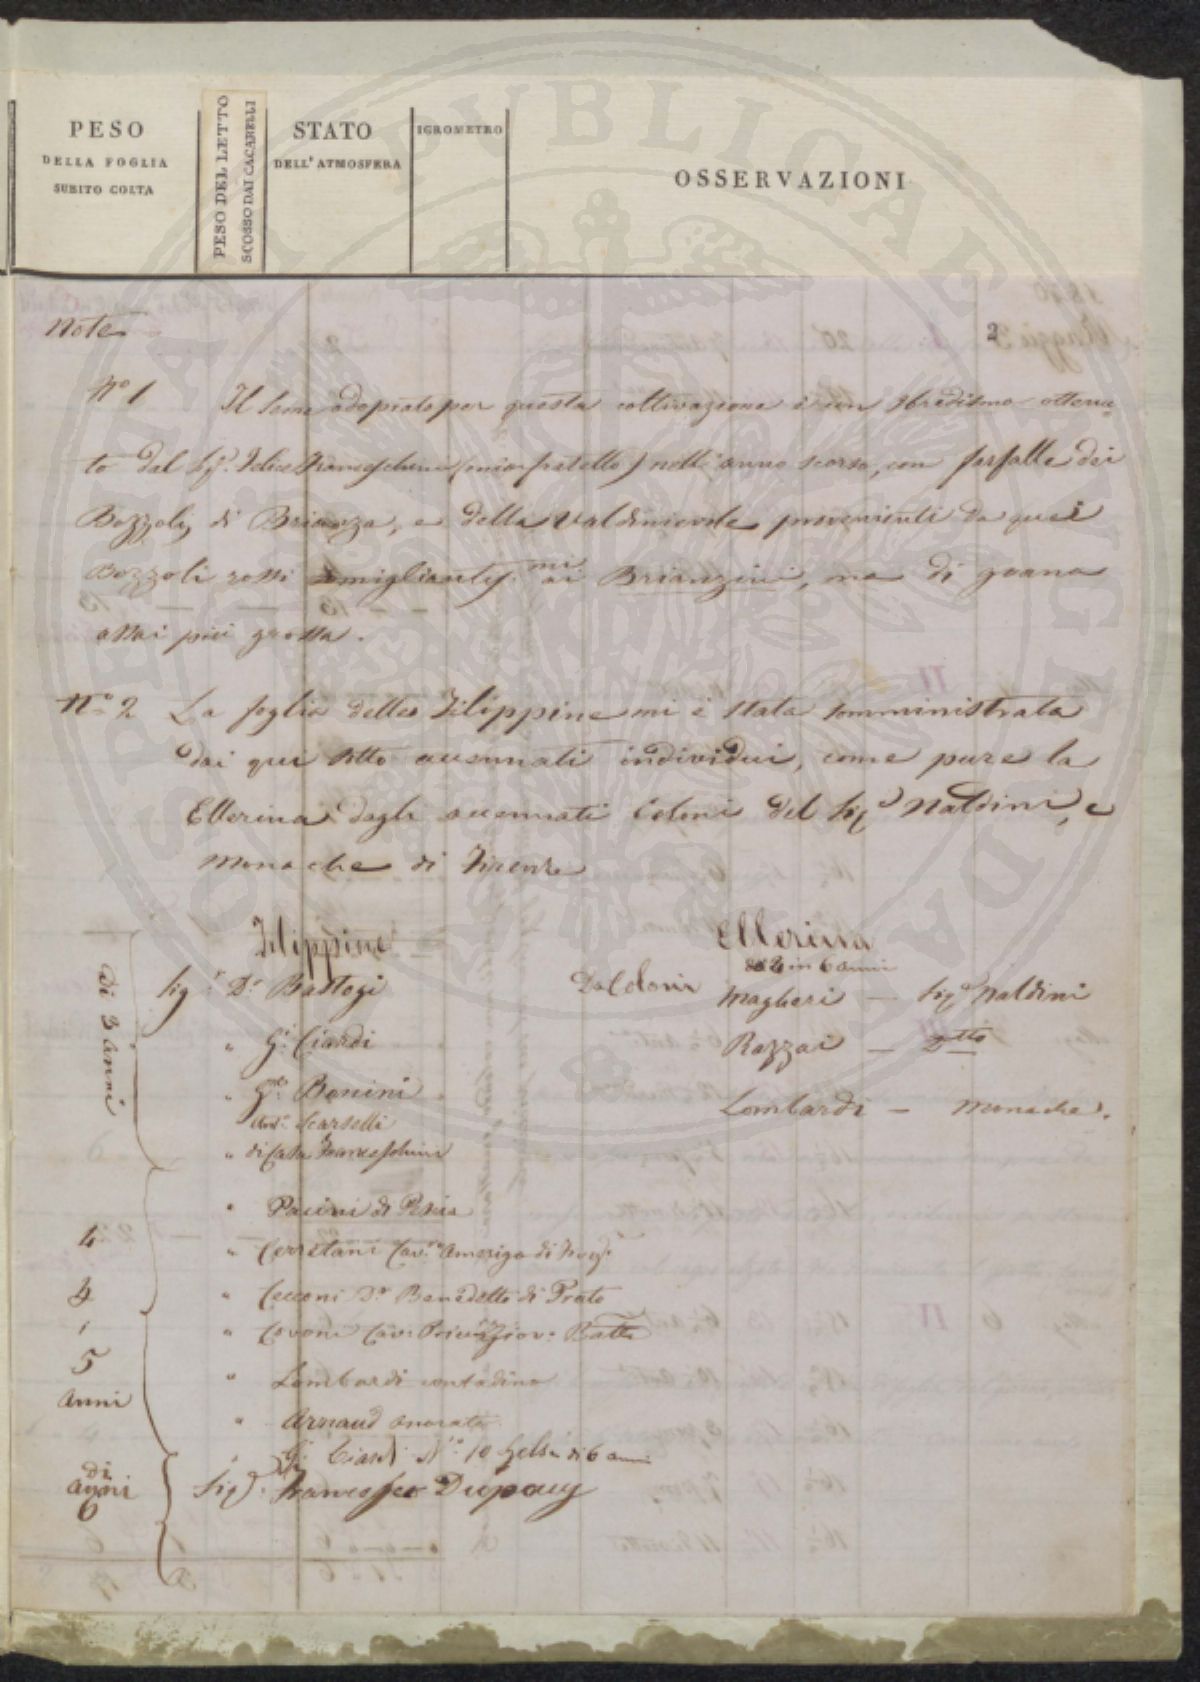 PESO
DELLA FOGLIA
SUBITO COLTA
PESO DEL LETTO
SCOSSO DAI CACARELLI
STATO
DELL'ATMOSFERA
IGROMETRO
OSSERVAZIONI
2
Note
N.º 1 Il Seme adoprato per questa coltivazione è un Ibridismo ottenu=
to dal Sig.r Felice Franceschini (mio fratello) nell'anno scorso, con farfalle dei
Bozzoli di Brianza, e della Valdinievole provenienti da quei
Bozzoli rossi somigliantissi
mi
ai Brianzini, ma di grana
assai più grossa.
N.º 2 La foglia delle Filippine mi è stata somministrata
dai qui sotto accennati individui, come pure la
Ellerina dagli accennati Coloni del Sig.r Naldini, e
Monache di Firenze
Filippine
Ellerina
di 3 anni
in 6 anni
Sig.r D.r Bastogi
Da Coloni Magheri — Sig.r Naldini
" G. Ciardi
Razzai — D.tto
" Bonini
Lombardi — Monache.
Ant.o Scarselli
" di Casa Franceschini
" Pacini di Pescia
4
" Cerretani Cav.re Amerigo di
4
" Cecconi D.r Benedetto di Prato
" Covoni Cav. Giov. Batta
5
" Lombardi contadino
anni
" Arnaud onorato
" G. Ciardi N.º 10 Gelsi di 6 anni
di
anni
6
Sig.r Francesco Dupouy